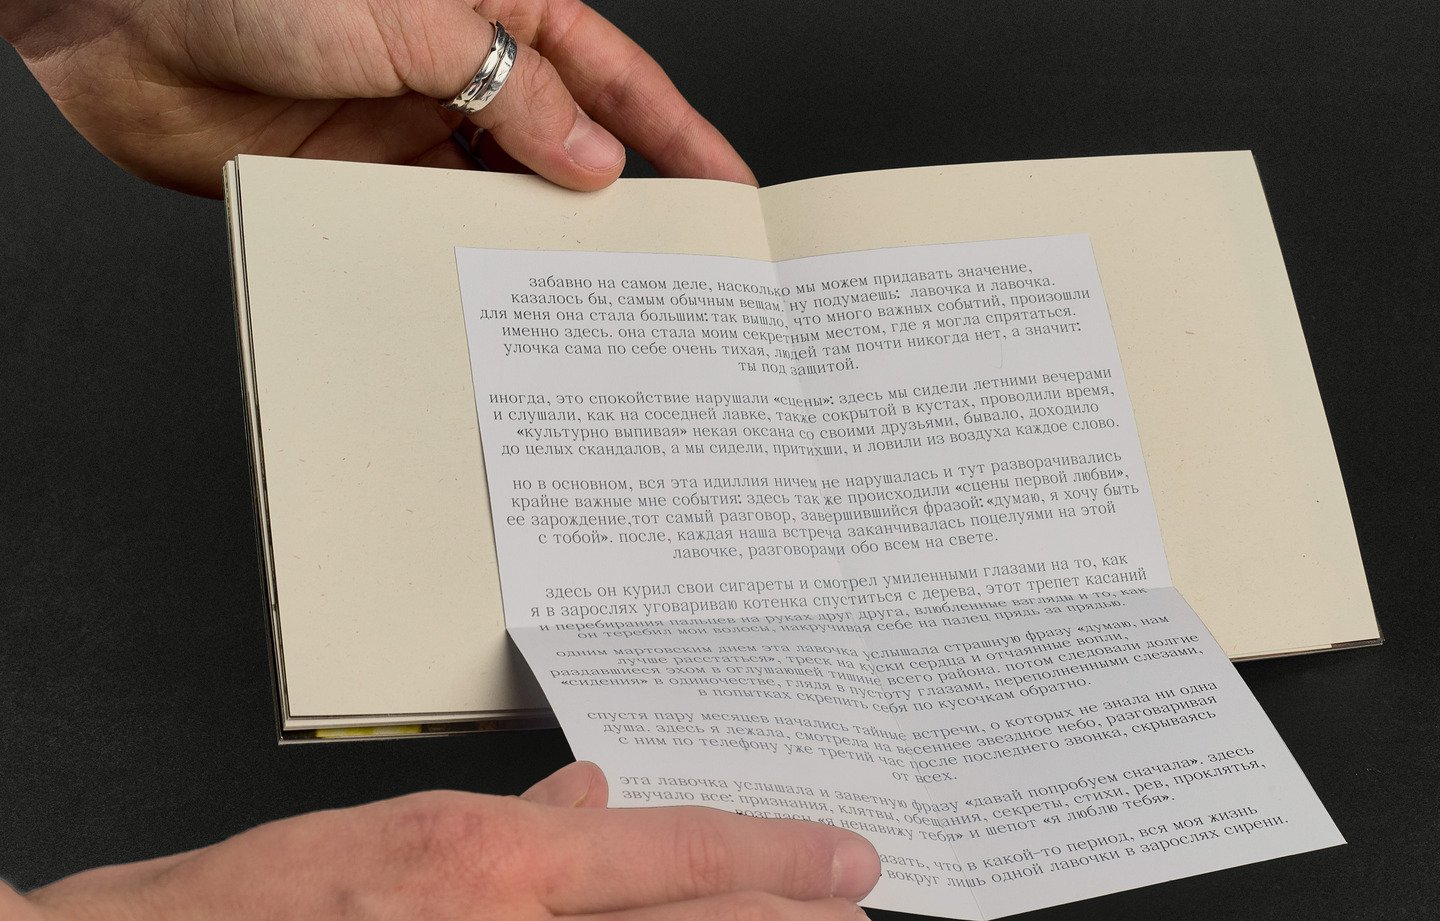 забавно на самом деле, насколько мы можем придавать значение,
казалось бы, самым обычным вещам. ну подумаешь: лавочка и лавочка.
для меня она стала большим: так вышло, что много важных событий, произошли
именно здесь. она стала моим секретным местом, где я могла спрятаться.
улочка сама по себе очень тихая, людей там почти никогда нет, а значит:
ты под защитой.
иногда, это спокойствие нарушали «сцены»: здесь мы сидели летними вечерами
и слушали, как на соседней лавке, также сокрытой в кустах, проводили время,
«культурно выпивая» некая оксана со своими друзьями, бывало, доходило
до целых скандалов, а мы сидели, притихши, и ловили из воздуха каждое слово.
но в основном, вся эта идиллия ничем не нарушалась и тут разворачивались
крайне важные мне события: здесь так же происходили «сцены первой любви»,
ее зарождение,тот самый разговор, завершившийся фразой: «думаю, я хочу быть
с тобой». после, каждая наша встреча заканчивалась поцелуями на этой
лавочке, разговорами обо всем на свете.
здесь он курил свои сигареты и смотрел умиленными глазами на то, как
я в зарослях уговариваю котенка спуститься с дерева, этот трепет касаний
и перебирания пальцев на руках друг друга, влюбленные взгляды и то, как
он теребил мои волосы, накручивая себе на палец прядь за прядью.
одним мартовским днем эта лавочка услышала страшную фразу «думаю, нам
лучше расстаться», треск на куски сердца и отчаянные вопли,
раздавшиеся эхом в оглушающей тишине всего района. потом следовали долгие
«сидения» в одиночестве, глядя в пустоту глазами, переполненными слезами,
в попытках скрепить себя по кусочкам обратно.
спустя пару месяцев начались тайные встречи, о которых не знала ни одна
душа. здесь я лежала, смотрела на весеннее звездное небо, разговаривая
с ним по телефону уже третий час после последнего звонка, скрываясь
от всех.
эта лавочка услышала и заветную фразу «давай попробуем сначала». здесь
звучало все: признания, клятвы, обещания, секреты, стихи, рев, проклятья,
возгласы «я ненавижу тебя» и шепот «я люблю тебя».
что в какой-то период, вся моя жизнь
вокруг лишь одной лавочки в зарослях сирени.